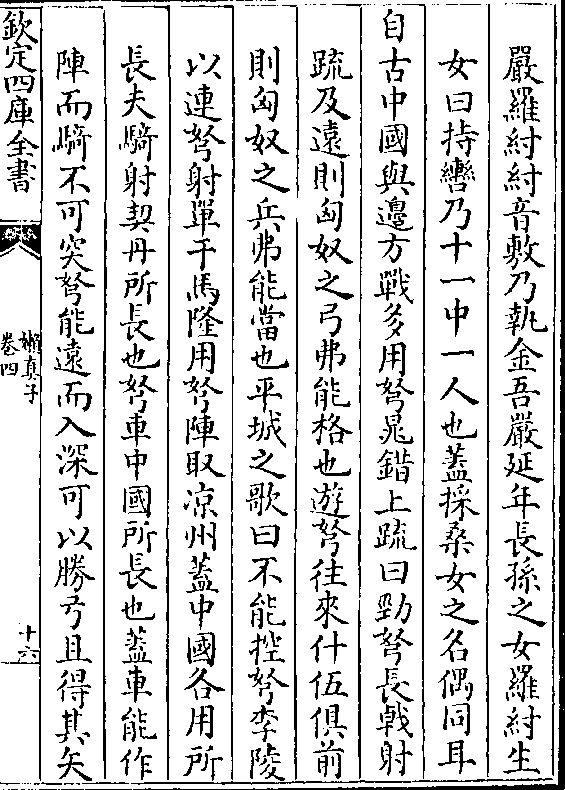 嚴羅紂紂音敷乃執金吾嚴延年長孫之女羅紂生
女曰持轡乃十一中一人也蓋採桑女之名偶同耳
自古中國與邊方戰多用弩鼂錯上疏曰勁弩長戟射
疏及遠則匈奴之弓弗能格也遊弩往來什伍俱前
則匈奴之兵弗能當也平城之歌曰不能控弩李陵
以連弩射單于馬隆用弩陣取凉州蓋中國各用所
長夫騎射契丹所長也弩車中國所長也蓋車能作
陣而騎不可突弩能遠而入深可以勝弓且得其矢
欽定四庫全書
嬾真子
卷四
十六